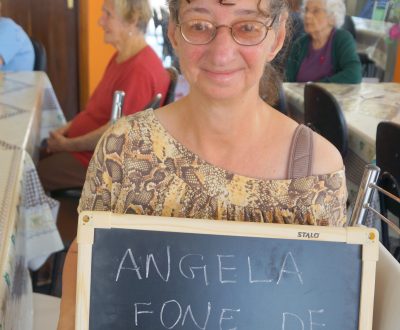 STALO
ANGELA
FONE DE